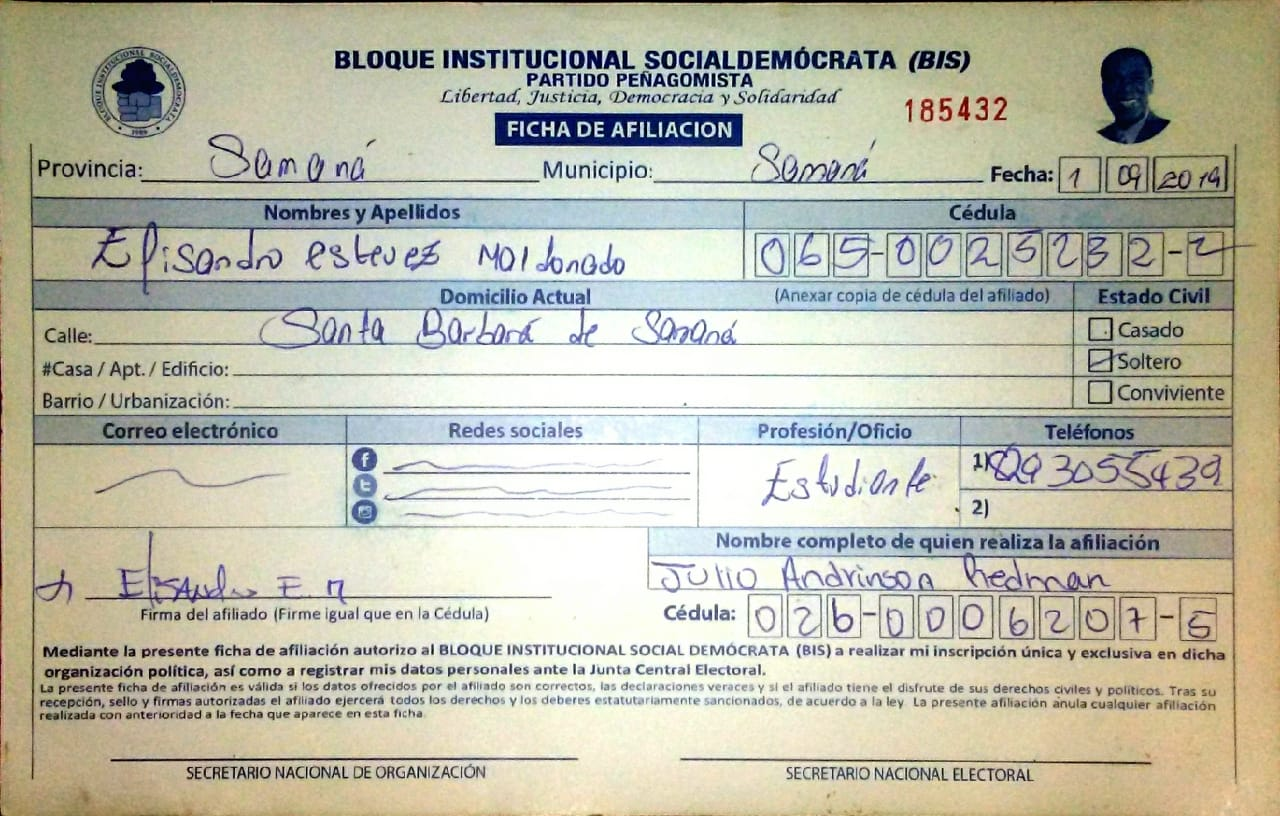 BLOQUE INSTITUCIONAL SOCIALDEMÓCRATA (BIS)
PARTIDO PEÑAGOMISTA
Libertad, Justicia, Democracia y Solidaridad
185432
FICHA DE AFILIACION
Provincia: Samaná Municipio: Samaná Fecha: 1 09 2019
Nombres y Apellidos Cédula
Elisandro estevez Maldonado 065-0025232-2
Domicilio Actual (Anexar copia de cédula del afiliado) Estado Civil
Calle: Santa Barbará de Samaná Casado
#Casa / Apt. / Edificio: Soltero
Barrio / Urbanización: Conviviente
Correo electrónico Redes sociales Profesión/Oficio Teléfonos
Estudiante 1) 8293055439
2)
Nombre completo de quien realiza la afiliación
Julio Andrinson Redman
Elisandro E. M
Firma del afiliado (Firme igual que en la Cédula) Cédula: 026-0006207-5
Mediante la presente ficha de afiliación autorizo al BLOQUE INSTITUCIONAL SOCIAL DEMÓCRATA (BIS) a realizar mi inscripción única y exclusiva en dicha
organización política, así como a registrar mis datos personales ante la Junta Central Electoral.
La presente ficha de afiliación es válida si los datos ofrecidos por el afiliado son correctos, las declaraciones veraces y si el afiliado tiene el disfrute de sus derechos civiles y políticos. Tras su
recepción, sello y firmas autorizadas el afiliado ejercerá todos los derechos y los deberes estatutariamente sancionados, de acuerdo a la ley. La presente afiliación anula cualquier afiliación
realizada con anterioridad a la fecha que aparece en esta ficha.
SECRETARIO NACIONAL DE ORGANIZACIÓN SECRETARIO NACIONAL ELECTORAL